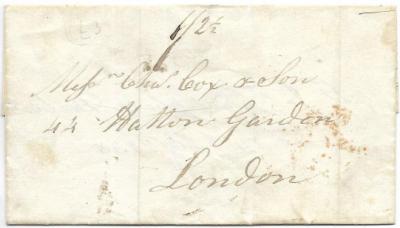 1/2½
Messrs Chas. Cox & Son
44 Hatton Garden
London